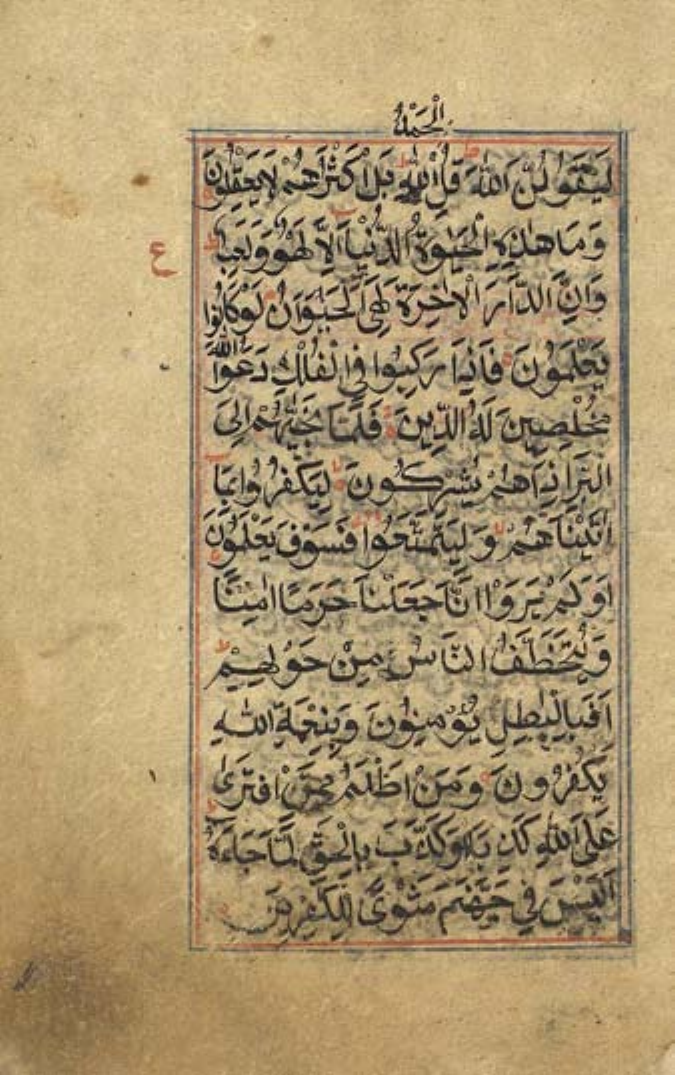 الحمد
لَيَقُولُنَّ اللّٰهُ قُلِ للّٰهِ بَلْ اَكْثَرُهُمْ لَا يَعْقِلُوْنَ
وَمَا هٰذِهِ الْحَيٰوةُ الدُّنْيَا اِلَّا لَهْوٌ وَّلَعِبٌ ط
ع
وَاِنَّ الدَّارَ الْاٰخِرَةَ لَهِيَ الْحَيَوَانُ لَوْ كَانُوْا
يَعْلَمُوْنَ فَاِذَا رَكِبُوْا فِي الْفُلْكِ دَعَوُا اللّٰهَ
مُخْلِصِيْنَ لَهُ الدِّيْنَ فَلَمَّا نَجّٰىهُمْ اِلَى
الْبَرِّ اِذَا هُمْ يُشْرِكُوْنَ لِيَكْفُرُوْا بِمَا
اٰتَيْنٰاهُمْ وَلِيَتَمَتَّعُوْا فَسَوْفَ يَعْلَمُوْنَ
اَوَلَمْ يَرَوْا اَنَّا جَعَلْنَا حَرَمًا اٰمِنًا
وَّيُتَخَطَّفُ النَّاسُ مِنْ حَوْلِهِمْ ط
اَفَبِالْبٰطِلِ يُؤْمِنُوْنَ وَبِنِعْمَةِ اللّٰهِ
يَكْفُرُوْنَ وَمَنْ اَظْلَمُ مِمَّنِ افْتَرٰى
عَلَى اللّٰهِ كَذِبًا اَوْ كَذَّبَ بِالْحَقِّ لَمَّا جَاءَهُ ط
اَلَيْسَ فِيْ جَهَنَّمَ مَثْوًى لِّلْكٰفِرِيْنَ